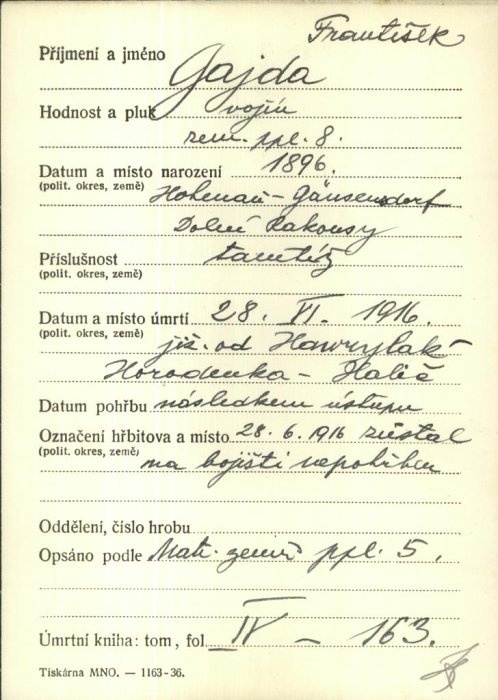 František
Příjmení a jméno Gajda
Hodnost a pluk vojín
zem. ppl. 8.
Datum a místo narození 1896.
(polit. okres, země) Hohenau - Gänserndorf
Dolní Rakousy
Příslušnost tamtéž
(polit. okres, země)
Datum a místo úmrtí 28. VI. 1916.
(polit. okres, země) již. od Hawrylak
Horodenka - Halič
Datum pohřbu následkem ústupu
Označení hřbitova a místo 28. 6. 1916 zůstal
(polit. okres, země) na bojišti nepohřben
Oddělení, číslo hrobu
Opsáno podle Matr. zemř. ppl. 5.
Úmrtní kniha: tom, fol. IV - 163.
Tiskárna MNO. — 1163-36.